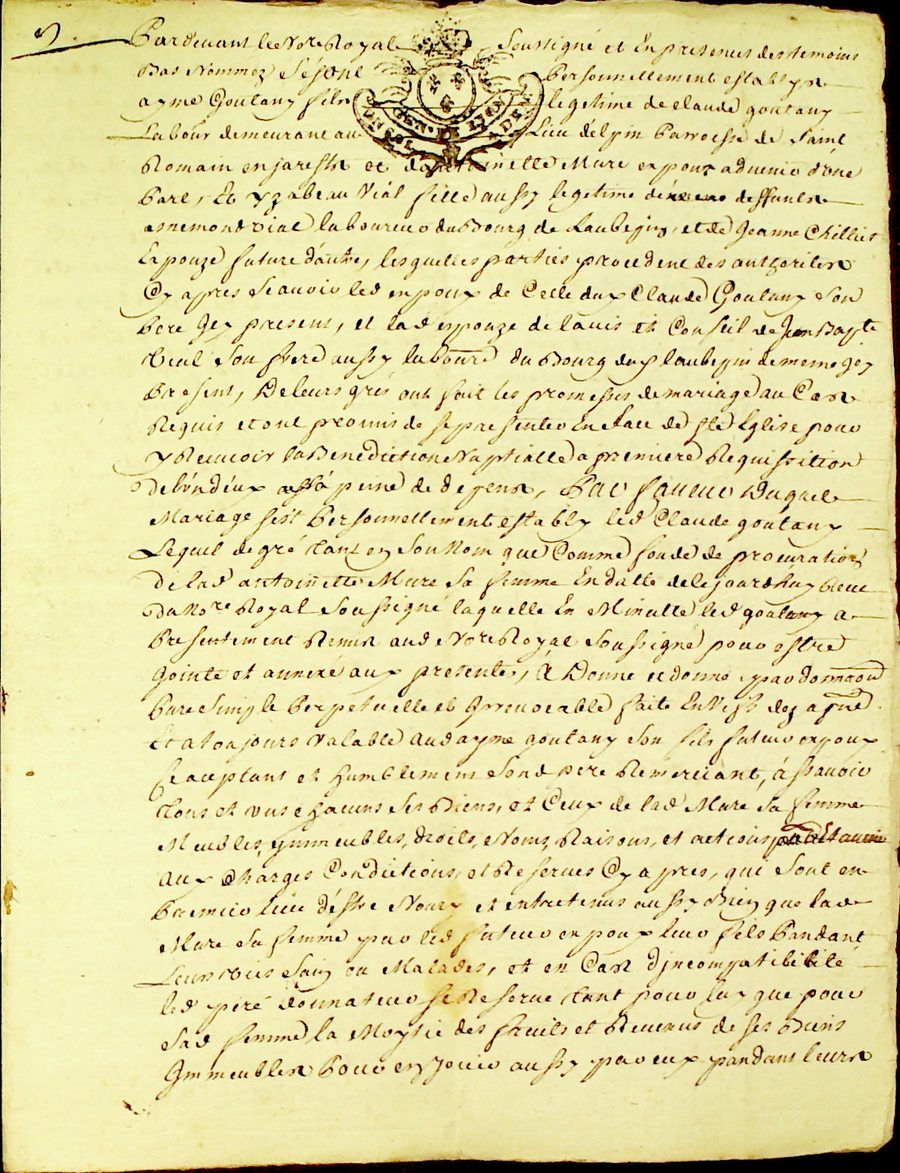 Pardevant le No.re Royal Soussigné et En presences des temoins
Bas Nommez Sesont Personnellement establys
ayme Goutany fils legitime de claude goutany
Labour demeurant au Lieu delpin Parroisse de Saint
Romain en jarestz et dantoinette Mure epoux advenir d'une
Part, Et yzabeau Vial fille aussy legitime de deffunts
annemond vial laboureur du Bourg de Laubepin, et de Jeanne Chillier
Epouze future d'autre, lesquelles parties procedent des authoritez
Cy apres scavoir led epoux de Celle dud Claude Goutany Son
Pere Icy present, et lad epouze de lavis et Conseil de Jean Bapte
Vial Son frere aussy laboure du Bourg dud laubepin de meme Icy
Present, De leurs gréz ont fait les promesses de mariage au Cas
Requis et ont promis de se presenter En face de Ste Eglise pour
y Recevoir la Benediction Nuptialle a premiere Requisition
De lun deux a peine de depens, Par faveur Duquel
Mariage sest Personnellement estably led Claude goutany
Lequel de gré tant en Son Nom que Comme fondé de procuration
De lad antoinette Mure Sa femme En datte de cejourdhuy Receue
Du No.re Royal Soussigné laquelle En Minutte led goutany a
Presentement Remis aud No.re Royal Soussigné pour estre
Jointe et annexé aux presentes, A Donné et donne par donnaon
Pure Simple Perpetuelle et Irrevocable faite Entre vifs
Et a toujours valable aud ayme goutany Son fils futur epoux
Acceptant et humblement Sond pere Remerciant, á scavoir
Tous et uns chacuns Ses Biens, et Ceux de lad Mure Sa femme
Meubles, Immeubles, droits, Noms, Raisons, et actions
Aux Charges Conditions et Reserves Cy apres, qui Sont en
Premier lieu d'éstre Noury et entretenus aussy Bien que lad
Mure Sa femme par led futur epoux leur fils Pandant
Leurs vies Sains ou Malades, et en Cas d'incompatibilité
led peré donnateur se Reserve tant pour luy que pour
Sad femme la Moytié des fruits et Revenus de ses Biens
Immeubles Pour en Jouir aussy par eux pandant leurs